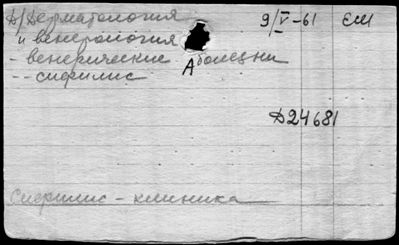 Д/Дерматология 9/V-61 ЕМ
и венерология
- венерические А болезни
-- сифилис
Д24681
Сифилис - клиника